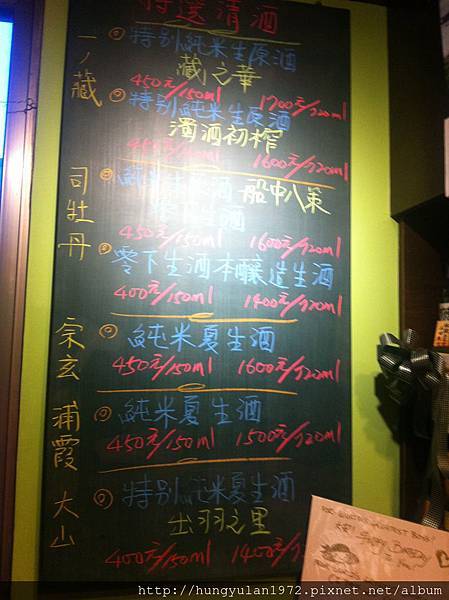 特選清酒
一ノ藏
◎特別純米生原酒
藏之華
450元/150ml 1700元/720ml
◎特別純米生原酒
濁酒初榨
450元/150ml 1600元/720ml
司牡丹
船中八策
450元/150ml 1600元/720ml
零下生酒本釀造生酒
400元/150ml 1400元/720ml
宗玄
◎純米夏生酒
450元/150ml 1600元/720ml
浦霞
◎純米夏生酒
450元/150ml 1500元/720ml
大山
◎特別純米夏生酒
出羽之里
400元/150ml 1400元/7
http://hungyulan1972.pixnet.net/album